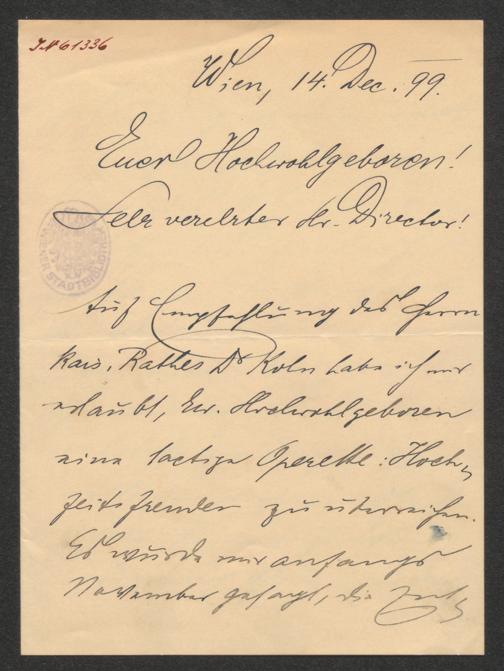 I.N 61336
Wien, 14. Dec. 99.
Euer Hochwohlgeboren!
Sehr verehrter Hr. Director!
WIENER STADTBIBLIOTHEK
Auf Empfehlung des Herrn
kais. Rathes Dr Kohn habe ich mir
erlaubt, Ew. Hochwohlgeboren
eine 1actige Operette: Hoch-
zeitsfreuden zu überreichen.
Es wurde mir anfangs
November gesagt, die